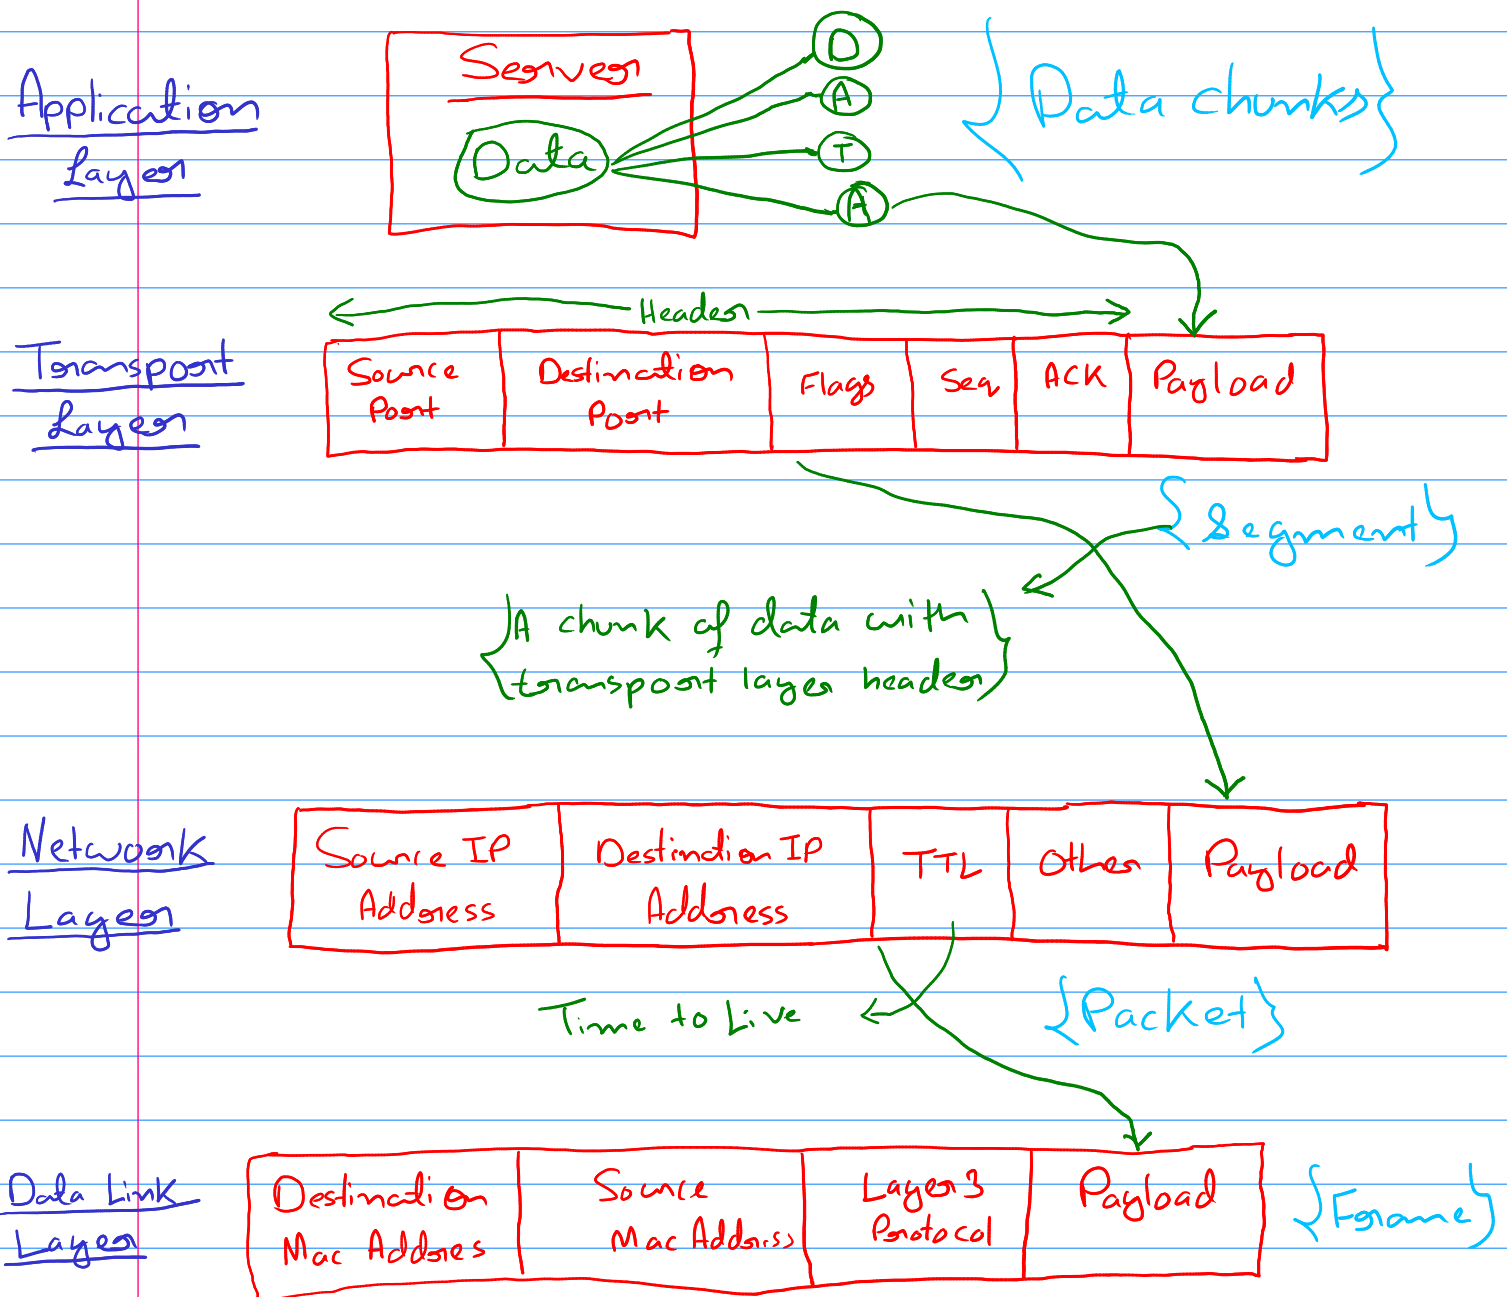 Application
Layer
Server
Data
D
A
T
A
{Data chunks}
Header
Transport
Layer
Source
Port
Destination
Port
Flags
Seq
ACK
Payload
{Segment}
{A chunk of data with
transport layer header}
Network
Layer
Source IP
Address
Destination IP
Address
TTL
Other
Payload
Time to Live
{Packet}
Data Link
Layer
Destination
Mac Addres
Source
Mac Address
Layer 3
Protocol
Payload
{Frame}